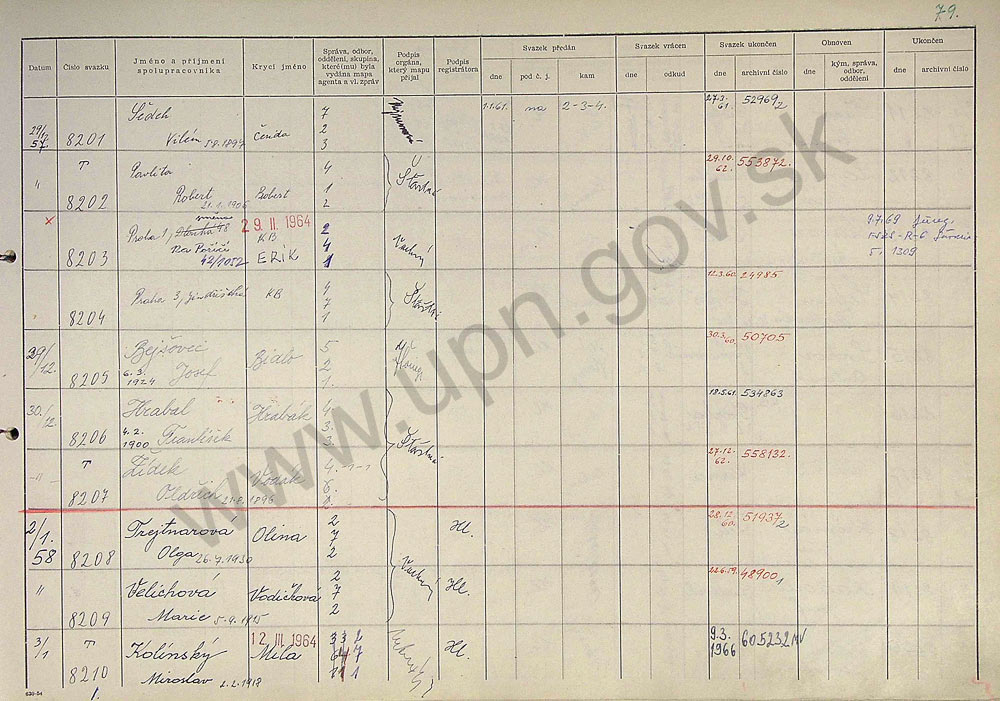 79.
Datum
Číslo svazku
Jméno a příjmení
spolupracovníka
Krycí jméno
Správa, odbor,
oddělení, skupina,
které(mu) byla
vydána mapa
agenta a vl. zpráv
Podpis
orgána,
který mapu
přijal
Podpis
registrátora
Svazek předán
dne
pod č. j.
kam
Svazek vrácen
dne
odkud
Svazek ukončen
dne
archivní číslo
Obnoven
dne
kým, správa,
odbor,
oddělení
Ukončen
dne
archivní číslo
29/
57 8201 Vilém 5.8.1894 Čenda 7 2 3 1.1.61. na 2-3-4. 27.3. 61. 52969/2
" 8202 T Pavlita
Robert 21.1.1906 Robert 4 1 2 Šťastní 29.10. 62. 553872.
x 8203 Praha 1, Dlouhá
Na Poříčí
42/1052 29 II 1964
KB
ERIK 2 4 1 Vachný 9.7.69
5. 1309
8204 Praha 3, Jindřišská KB 4 7 1 Šťastní 12.3.60. 24985.
29/
12. 8205 Bejšovec
6.3.
1924 Josef Bidlo 5 2 1. 30.3. 60. 50705
30/
12. 8206 Hrabal
4.2.
1900 František Hrabák 4 3. 3. Šťastní 18.5.61. 534863
-"- 8207 T Žídek
Oldřich 21.8.1896 Vodák 4.-1-1 6. 2. 27.12. 62. 558132.
2/1.
58 8208 Trejtnarova
Olga 26.7.1930 Olina 2 7 2 Vachný Hl. 28.12. 60. 51937/2
" 8209 Velichová
Marie 5.9.1915 Vodičková 2 7 2 Hl. 22.6.59. 48900/1
3/1 8210 T Kolínský
Miroslav 2.2.1918 12 III 1964
Míla 33 2 64 7 11 1 Hl. 9.3.
1966 605232 MV
1.
www.upn.gov.sk